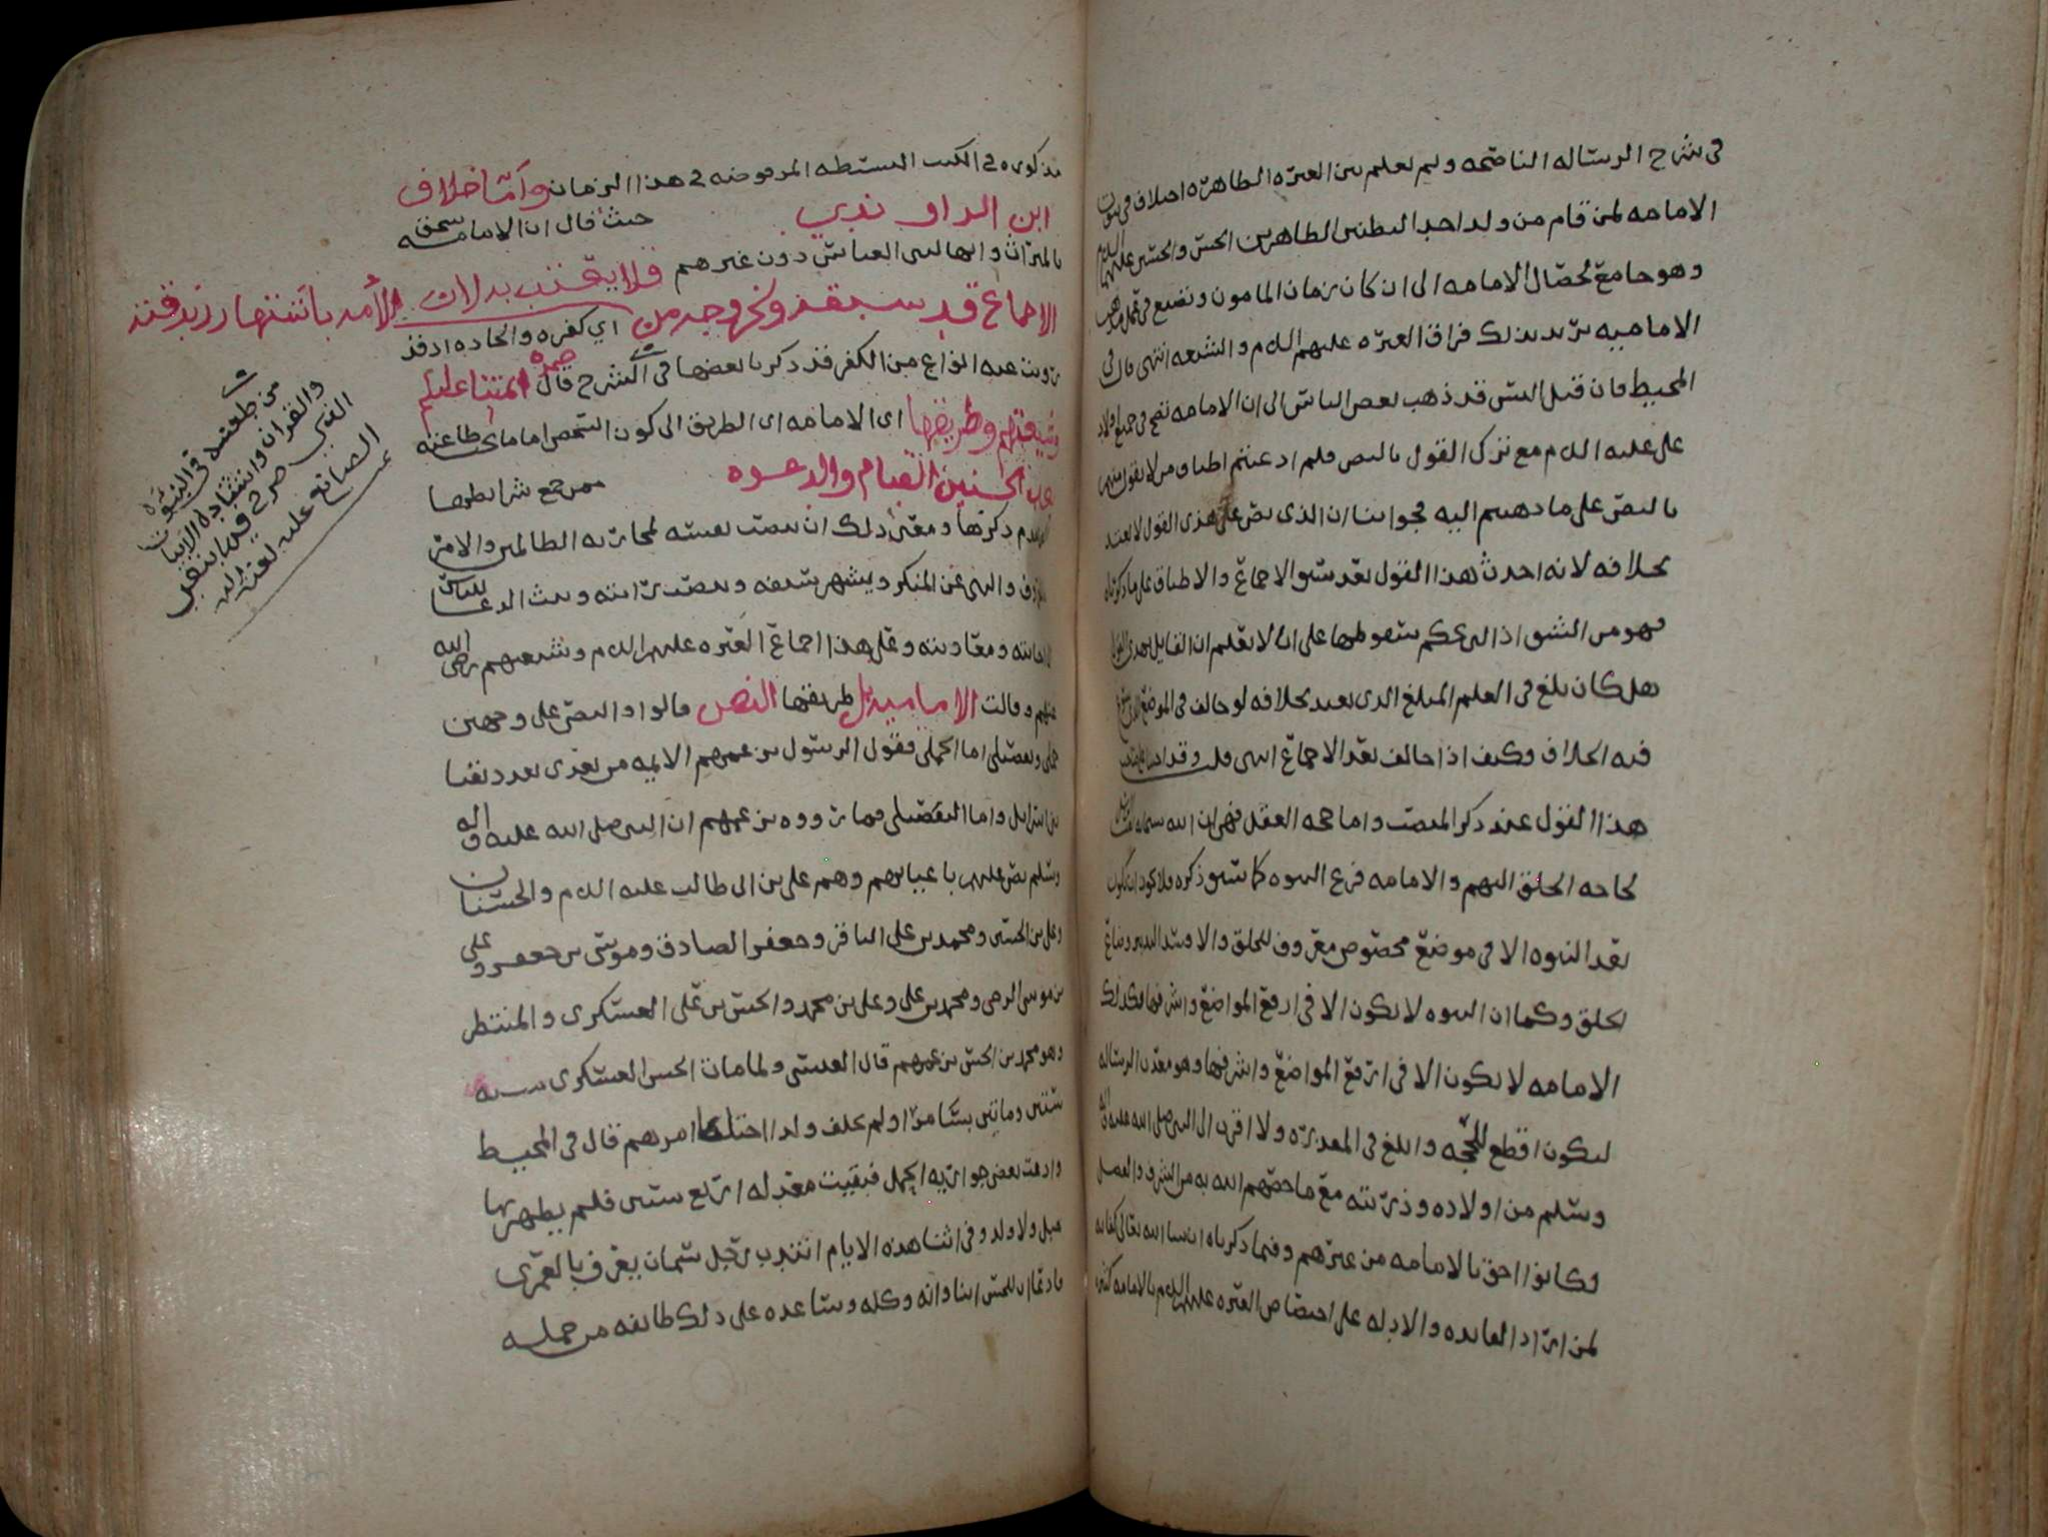 في شرح الرساله الناصحه ولم نعلم بين العتره الطاهره اختلاف في ثبوت
الامامه لمن قام من ولد احد البطنين الطاهرين الحسن والحسين عليهما السلام
وهو جامع لخصال الامامه الى ان كان زمان المامون ونصع في عمل مذهب
الاماميه يريد بذلك فراق العتره عليهم السلام والشيعه انتهى قال في
المحيط فان قيل اليس قد ذهب بعض الناس الى ان الامامه تصح في جميع اولاد
علي عليه السلام مع ترك القول بالنص فلم ادعيتم اطباق من لا يقول منهم
بالنص على ما ذهبتم اليه فجوابنا ان الذي نص على هذى القول لا يعتد
بخلافه لانه احدث هذا القول بعد سبق الاجماع والاطباق على ما ذكرناه
فهو من الشق الذي يحكم بسقوطها على انا لا نعلم ان القايل بهذى القول
هل كان بلغ في العلم المبلغ الذي يعتد بخلافه لو خالف في الموضع الذي يسوغ
فيه الخلاف وكيف اذا خالف بعد الاجماع انتهى قلت وقد
هذا القول عند ذكر المنصب واما حجه العقل فهي ان الله سبحانه
لحاجه الخلق اليهم والامامه فرع النبوه كما سبق ذكره فلا يجوز ان تكون
بعد النبوه الا في موضع مخصوص معروف للخلق والا وسد التدبير وضاع
الخلق وكما ان النبوه لا تكون الا في ارفع المواضع واشرفها فكذلك
الامامه لا تكون الا في ارفع المواضع واشرفها وهو معدن الرساله
ليكون اقطع للحجه وابلغ في المعذره ولا اقرب الى النبي صلى الله عليه واله
وسلم من اولاده وذريته مع ما خصهم الله به من الشرف والفضل
فكانوا احق بالامامه من غيرهم وفيما ذكرناه ان شا الله تعالى كفايه
لمن اراد الفايده والادله على اختصاص العتره عليهم السلام بالامامه كثيره
مذكوره في الكتب البسيطه المرفوضه في هذا الزمان واما خلاف
ابن الراوندي حيث قال ان الامامه تستحق
بالميراث وانها لبني العباس دون غيرهم فلا يقتنب بدلان الامه باسنتها رزندقته
الاجماع قد سبقه ونخروجه من اي كفره والحاده اذ قد
رويت عنه انواع من الكفر قد ذكرنا بعضها في الشرح قال ائمتنا عليهم
وشيعتهم وطريقها اي الامامه اي الطريق الى كون الشخص اماما تجب طاعته
بعد الحسنين القيام والدعوه ممن جمع شرايطها
المتقدم ذكرها ومعنى ذلك ان ينصب نفسه لمحاربه الظالمين والامر
بالمعروف والنهي عن المنكر ويشهر سيفه وينصب رايته ويبث الدعا للناس
الى اعانته ومعاونته وعلى هذا اجماع العتره عليهم السلام وشيعتهم رضي الله
عنهم وقالت الاماميه بل طريقها النص قالوا والنص على وجهين
جملي وتفصيلي اما الجملي فقول الرسول بزعمهم الايمه من بعدي بعدد نقبا
بني اسرايل واما التفصيلي فما رووه بزعمهم ان النبي صلى الله عليه واله
وسلم نص عليهم باعيانهم وهم علي بن ابي طالب عليه السلام والحسنان
وعلي بن الحسين ومحمد بن علي الباقر وجعفر الصادق وموسى بن جعفر وعلي
بن موسى الرضى ومحمد بن علي وعلي بن محمد والحسن بن علي العسكري والمنتظر
وهو محمد بن الحسن بزعمهم قال العنسي ولما مات الحسن العسكري سنه
ستين وماتين بسامرا ولم يخلف ولدا اختلط امرهم قال في المحيط
وادعت بعض جواريه الحمل فبقيت معتدله اربع سنين فلم يظهر بها
حبل ولا ولد وفي اثنا هذه الايام انتدب رجل سمان يعرف بالعمري
فادعا ان للحسن ابنا وانه وكله وساعده على ذلك طايفه من جملته
من طعنه في النبوه
والقران وانتقاده الانبيا
النبي صرح فيها بنفي
الصانع عليه لعنه الله